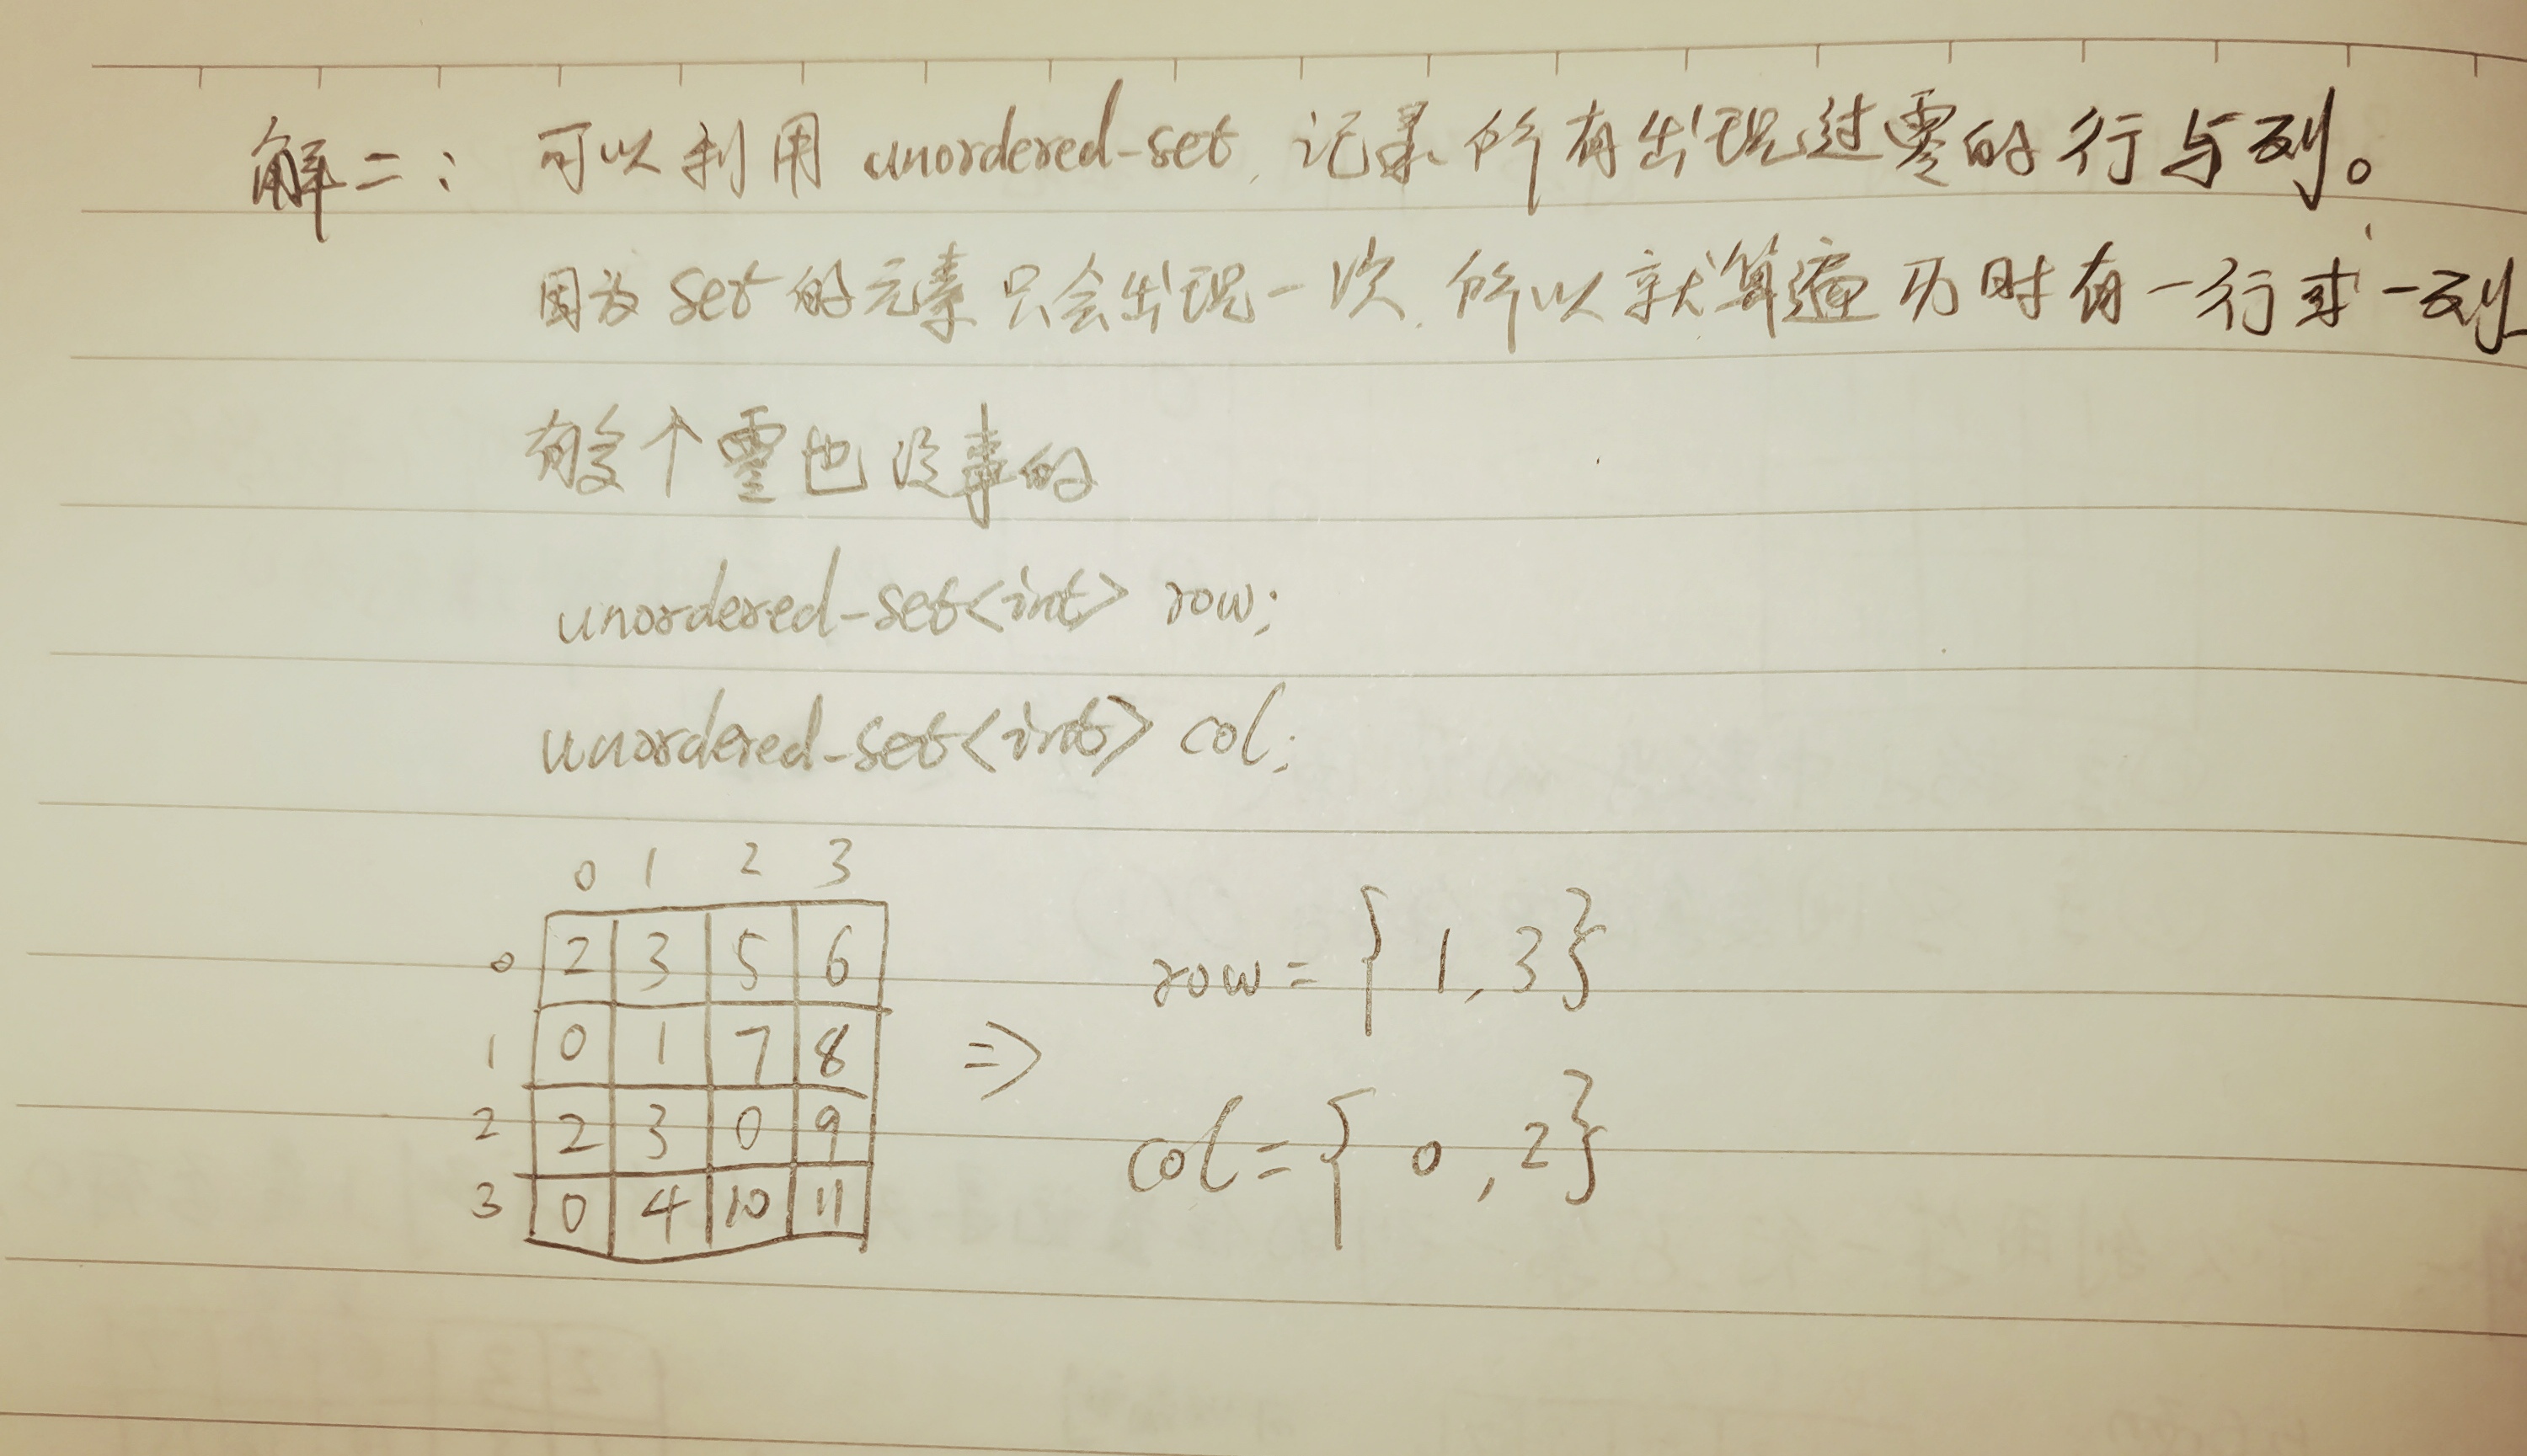 解二： 可以利用 unordered-set, 记录所有出现过零的行与列。
因为 set 的元素只会出现一次, 所以就算遍历时有一行或一列
有多个零也没事的
unordered-set<int> row;
unordered-set<int> col;
0 1 2 3
0 2 3 5 6
1 0 1 7 8
2 2 3 0 9
3 0 4 10 11
=>
row = { 1, 3}
col = { 0, 2}